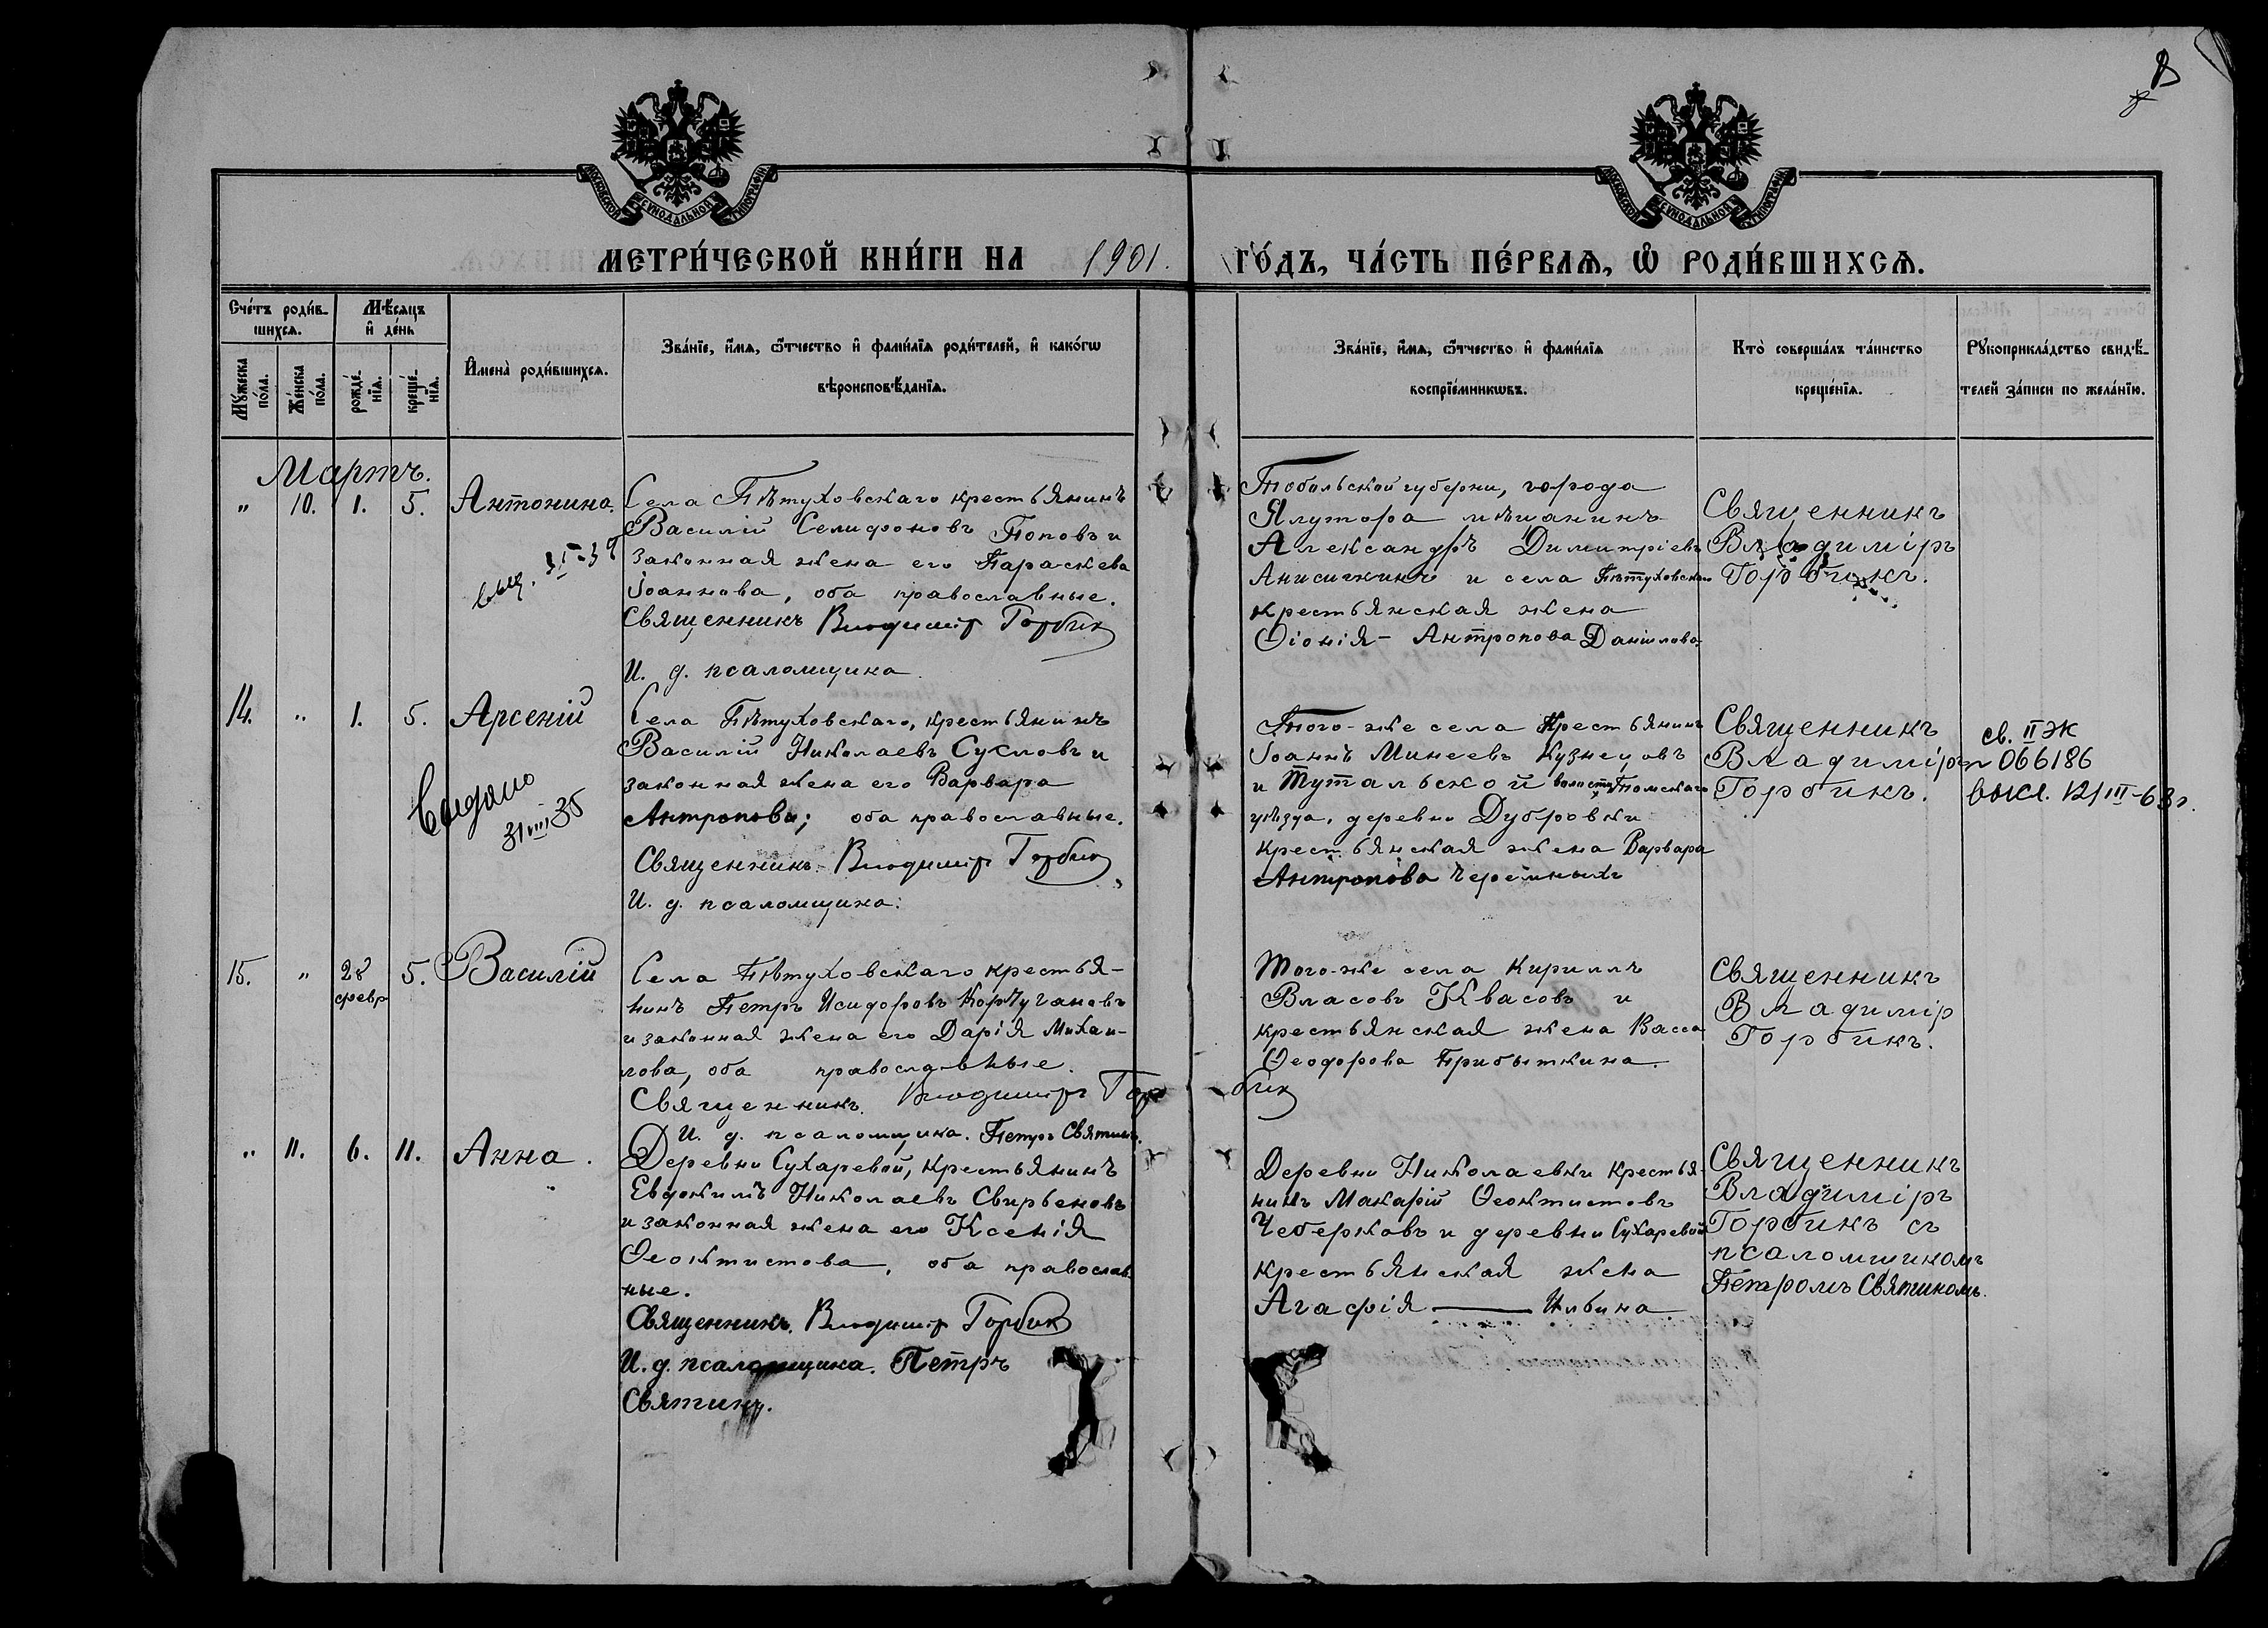 8
МОСКОВСКОЙ СѴНОДАЛЬНОЙ ТИПОГРАФІИ
МОСКОВСКОЙ СѴНОДАЛЬНОЙ ТИПОГРАФІИ
МЕТРИ́ЧЕСКОЙ КНИ́ГИ НА 1901. ГО́ДЪ, ЧА́СТЬ ПЕ́РВАѦ, Ѽ РОДИ́ВШИХСѦ.
Сче́тъ роди́в-
шихсѧ.
Мѣ́сѧцъ
и҆ де́нь
Мꙋ́жеска
по́ла.
Же́нска
по́ла.
рожде́-
нїѧ.
креще́-
нїѧ.
И҆мена̀ роди́вшихсѧ.
Зва́нїе, и҆́мѧ, ѻ҆́тчество и҆ фами́лїѧ роди́телей, и҆ како́гѡ
вѣроисповѣ́данїѧ.
Зва́нїе, и҆́мѧ, ѻ҆́тчество и҆ фами́лїѧ
воспрїе́мникѡвъ.
Кто̀ соверша́лъ та́инство
креще́нїѧ.
Рꙋкоприкла́дство свидѣ́-
телей за́писи по жела́нїю.
Мартъ.
" 10. 1. 5. Антонина.
Села Пѣтуховскаго крестьянинъ
Василій Селифоновъ Поповъ и
законная жена его Параскева
Іоаннова, оба православные.
Священникъ Владиміръ Горбик
И. д. псаломщика
Тобольской губерни, города
Ялутора мѣщанинъ
Александръ Димитріевъ
Анисичкинъ и села Пѣтуховскаго
крестьянская жена
Ѳіонія - Антропова Данилова.
Священникъ
Владиміръ
Горбикъ.
14. " 1. 5. Арсеній
Выдано
31 III 36
Села Пѣтуховскаго, крестьянинъ
Василій Николаевъ Сусловъ и
законная жена его Варвара
Антропова; оба православные.
Священникъ. Владиміръ Горбик
И. д. псаломщика.
Того-же села Крестьянинъ
Іоаннъ Минеевъ Кузнецовъ
и Тутальской волости Томскаго
уѣзда, деревни Дубровки
крестьянская жена Варвара
Антропова Черемныхъ
Священникъ
Владиміръ
Горбикъ.
св. II ЖК
№ 066186
выкл. 12/III-63 г.
15. " 28 5. Василій
февр
Села Пѣтуховскаго крестья-
нинъ Петръ Исидоровъ Корчугановъ
и законная жена его Дарія Михаи-
лова, оба православные.
Священникъ. Владиміръ Горбик
И. д. псаломщика. Петръ Святинъ.
Того-же села Кириллъ
Власовъ Квасовъ и
крестьянская жена Васса
Ѳеодорова Прибыткина.
Священникъ
Владимір
Горбикъ.
" 11. 6. 11. Анна.
Деревни Сухаревой, крестьянинъ
Евдокимъ Николаевъ Свирбеновъ
и законная жена его Ксенія
Ѳеоктистова, оба православ-
ные.
Священникъ. Владиміръ Горбик
И. д. псаломщика. Петръ
Святинъ.
Деревни Николаевки крестья-
нинъ Макарій Ѳеоктистовъ
Чеберковъ и деревни Сухаревой
крестьянская жена
Агафія — Ильина
Священникъ
Владиміръ
Горбикъ съ
псаломщикомъ
Петромъ Святинымъ.